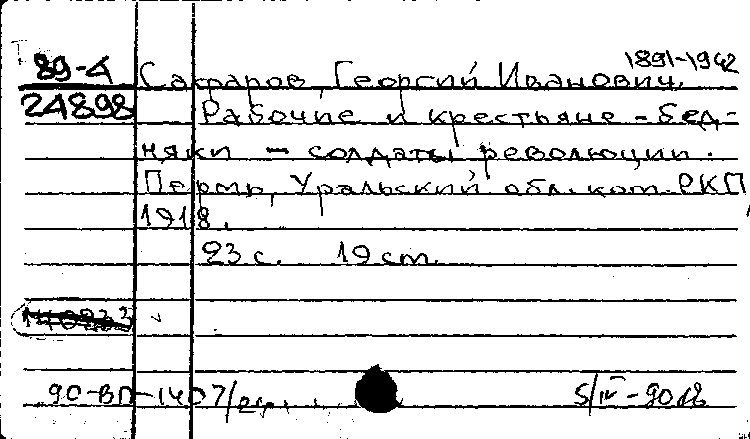 1891-1942
89-4 Сафаров, Георгий Иванович.
24898 Рабочие и крестьяне-бед-
няки - солдаты революции.
Пермь, Уральский обл. ком. РКП,
1918.
23 с. 19 cm.
90-ВП-1407/
5/IV-90